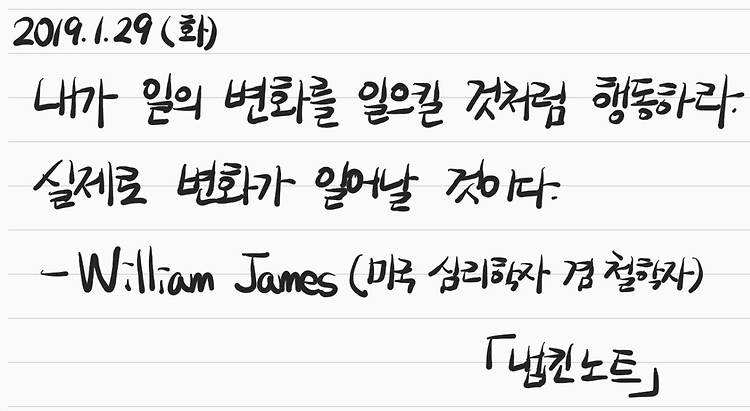 2019.1.29 (화)
내가 일의 변화를 일으킬 것처럼 행동하라.
실제로 변화가 일어날 것이다.
- William James (미국 심리학자 겸 철학자)
「냅킨노트」